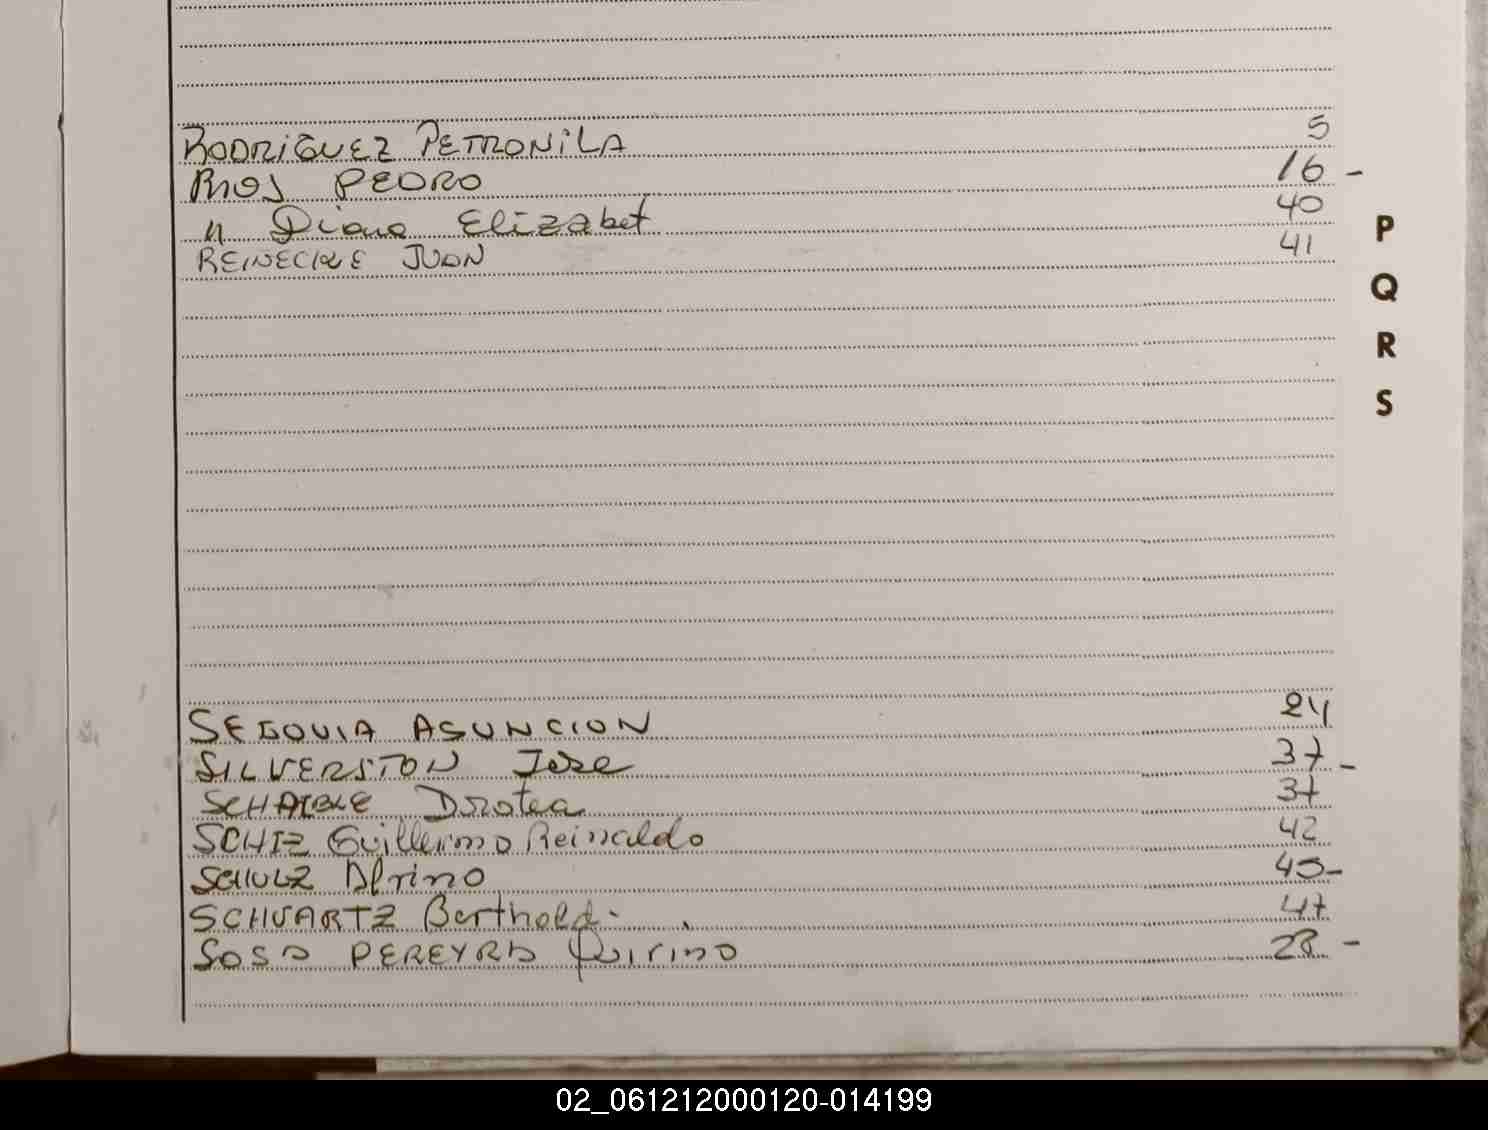 RODRIGUEZ PETRONILA 5
RIOS PEDRO 16 -
" Diana Elizabet 40
REINECKE JUAN 41
P
Q
R
S
SEGOVIA ASUNCION 24
SILVERSTON Jose 37 -
SCHAIBLE Dorotea 37
SCHIZ Guillermo Reinaldo 42
SCHULZ 45 -
SCHVARTZ Berthold 47
SOSA PEREYRA Quirino 28 -
02_061212000120-014199